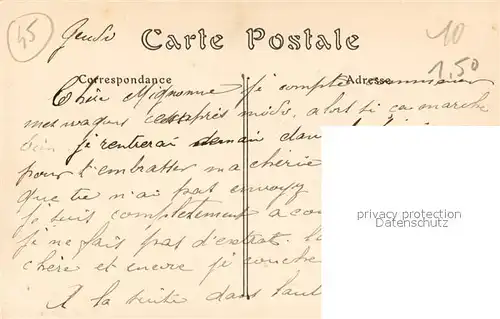 45
Jeudi
10
1,50
Carte Postale
Correspondance
Adresse
Chère Mignonne je compte
mes wagons cet après midi, alors si ça marche
bien je rentrerai demain dans
pour t'embrasser ma chérie
que tu n'ai pas envoyé
je suis complètement a cou
je ne fais pas d'extrat. la
chère et encore je couche
A la suite dans l'aut
privacy protection
AnsichtskartenCenter.de